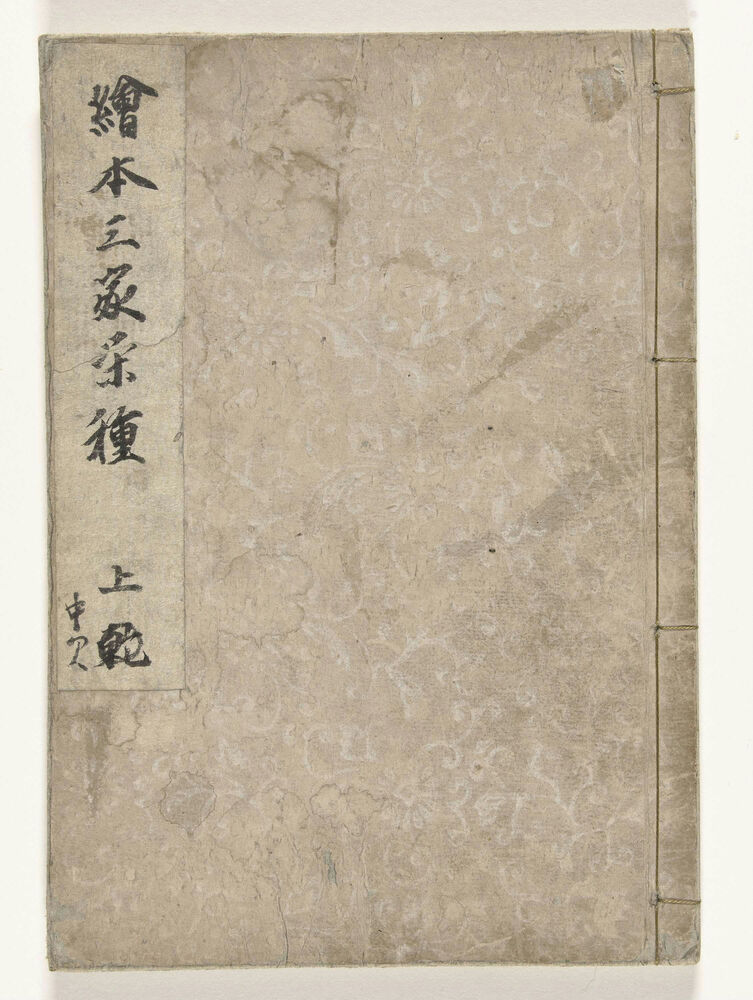 繪本三家栄種　上乾
中欠